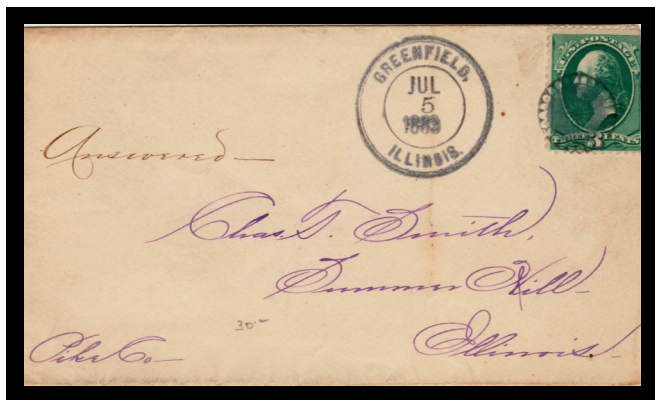 GREENFIELD,
JUL
5
1883
ILLINOIS.
U.S. POSTAGE
THREE 3 CENTS
Answered—
Chas. T. Smith,
Summer Hill—
Illinois—
Pike Co—
30.–